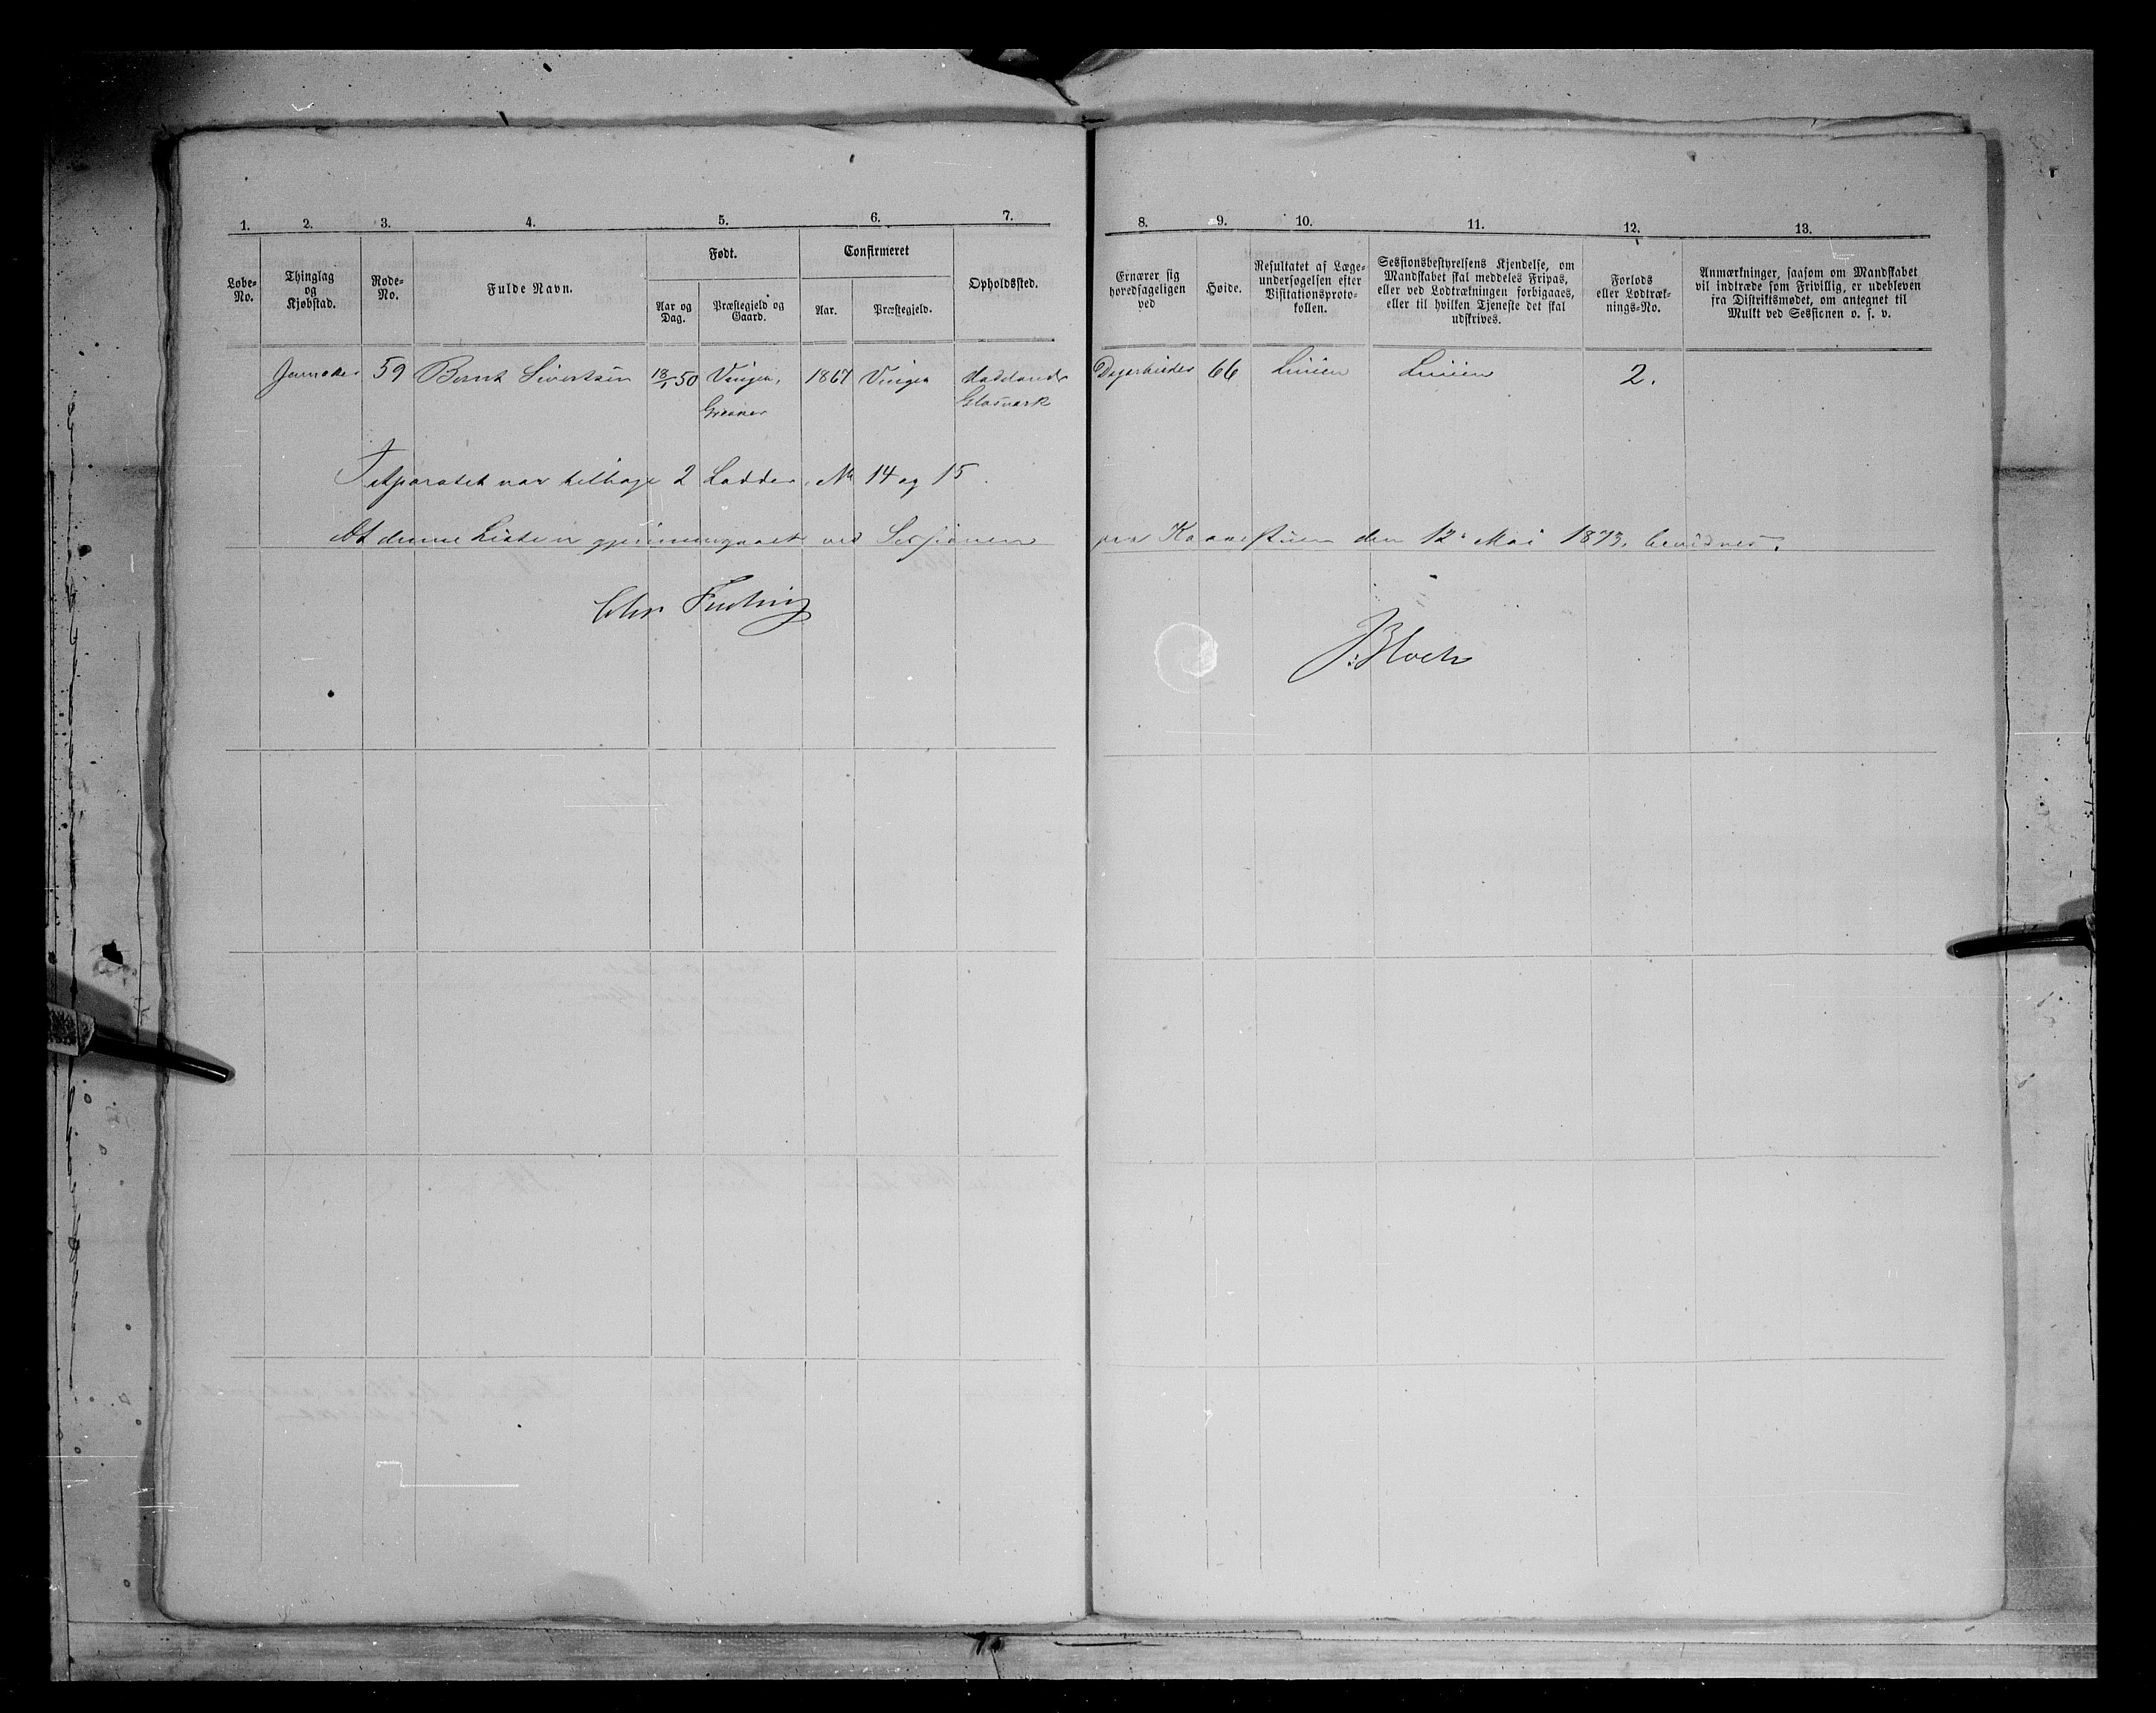 1. 2. 3. 4. 5. 6. 7. 8. 9. 10. 11. 12. 13.
Løbe-No.
Thinglag og Kjøbstad.
Rode-No.
Fulde Navn.
Født.
Aar og Dag.
Præstegjeld og Gaard.
Confirmeret
Aar.
Præstegjeld.
Opholdssted.
Ernærer sig hovedsageligen ved
Høide.
Resultatet af Læge-
undersøgelsen efter
Visitationsproto-
kollen.
Sessionsbestyrelsens Kjendelse, om
Mandskabet skal meddeles Fripas,
eller ved Lodtrækningen forbigaaes,
eller til hvilken Tjeneste det skal
udskrives.
Forlods
eller Lodtræk-
nings-No.
Anmærkninger, saasom om Mandskabet
vil indtræde som Frivillig, er udebleven
fra Distriktsmødet, om antegnet til
Mulkt ved Sessionen o. s. v.
Jevnaker 59 Bernt Sivertsen 18/1 50 Vinger, 1867 Vinger Hadelands Dagarbeider 66 Linien Linien 2.
Glasværk
var tilbage 2 Lodder, No 14 og 15.
At denne Liste er gjennemgaaet ved Sessionen paa den 12 Mai 1873, bevidnes.
Chr